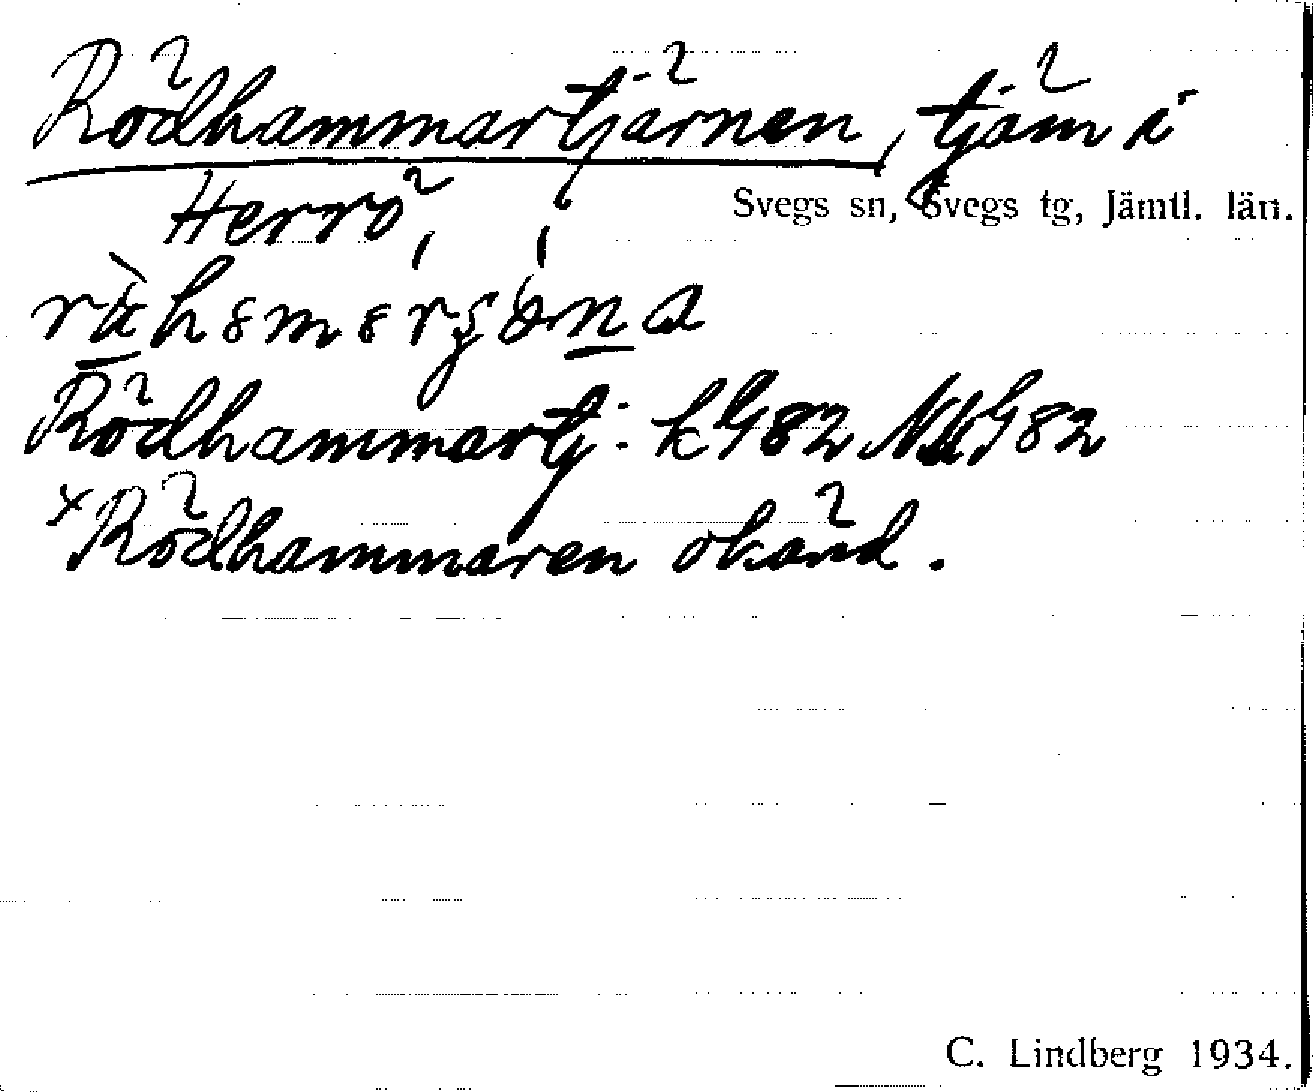 Rödhammartjärnen, tjärn i
Herrö,
Svegs sn, Svegs tg, Jämtl. län.
Rödhammartj. kG82 NUG82
×Rödhammaren okänd.
C. Lindberg 1934.